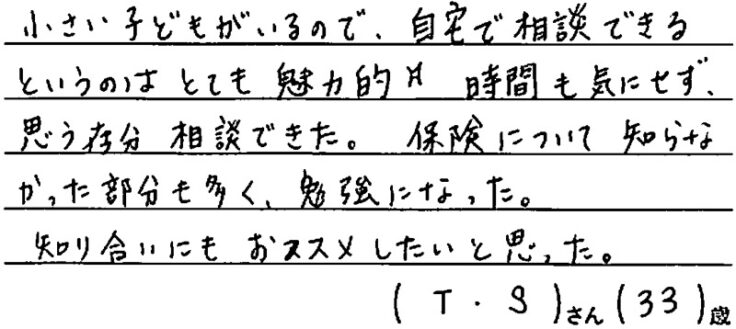 小さい子どもがいるので、自宅で相談できる
というのはとても魅力的。時間も気にせず、
思う存分相談できた。保険について知らな
かった部分も多く、勉強になった。
知り合いにもおススメしたいと思った。
(T・S)さん(33)歳